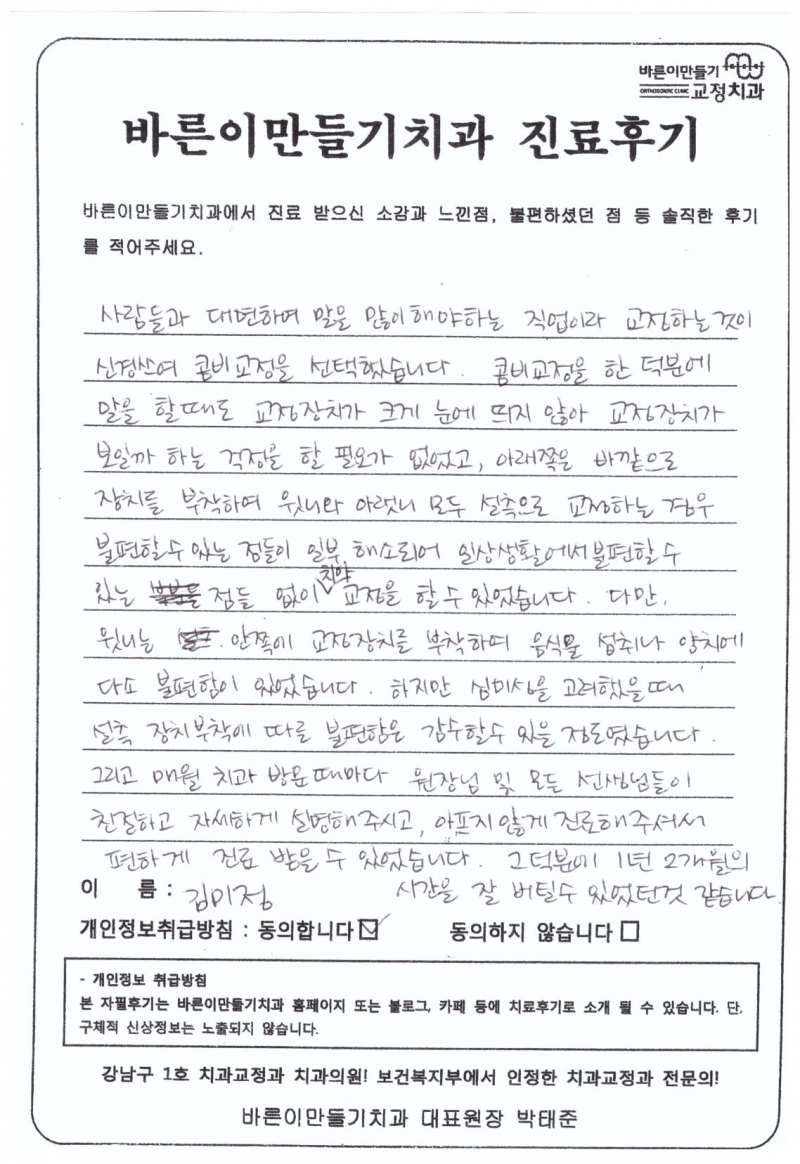 바른이만들기
ORTHODONTIC CLINIC 교정치과
바른이만들기치과 진료후기
바른이만들기치과에서 진료 받으신 소감과 느낀점, 불편하셨던 점 등 솔직한 후기
를 적어주세요.
사람들과 대면하여 말을 많이해야하는 직업이라 교정하는것이
신경쓰여 콤비교정을 선택했습니다. 콤비교정을 한 덕분에
말을 할때도 교정장치가 크게 눈에 띄지 않아 교정장치가
보일까 하는 걱정을 할 필요가 없었고, 아래쪽은 바깥으로
장치를 부착하여 윗니와 아랫니 모두 설측으로 교정하는 경우
불편할수 있는 점들이 일부 해소되어 일상생활에서 불편할 수
있는 점들 없이 치아 교정을 할 수 있었습니다. 다만,
윗니는 안쪽에 교정장치를 부착하여 음식물 섭취나 양치에
다소 불편함이 있었습니다. 하지만 심미성을 고려했을때
설측 장치부착에 따른 불편함은 감수할수 있을 정도였습니다.
그리고 매월 치과 방문때마다 원장님 및 모든 선생님들이
친절하고 자세하게 설명해주시고, 아프지않게 진료해주셔서
편하게 진료 받을 수 있었습니다. 그덕분에 1년 2개월의
이 름 : 김미정 시간을 잘 버틸수 있었던것 같습니다.
개인정보취급방침 : 동의합니다 ☑ 동의하지 않습니다 □
- 개인정보 취급방침
본 자필후기는 바른이만들기치과 홈페이지 또는 블로그, 카페 등에 치료후기로 소개 될 수 있습니다. 단,
구체적 신상정보는 노출되지 않습니다.
강남구 1호 치과교정과 치과의원! 보건복지부에서 인정한 치과교정과 전문의!
바른이만들기치과 대표원장 박태준